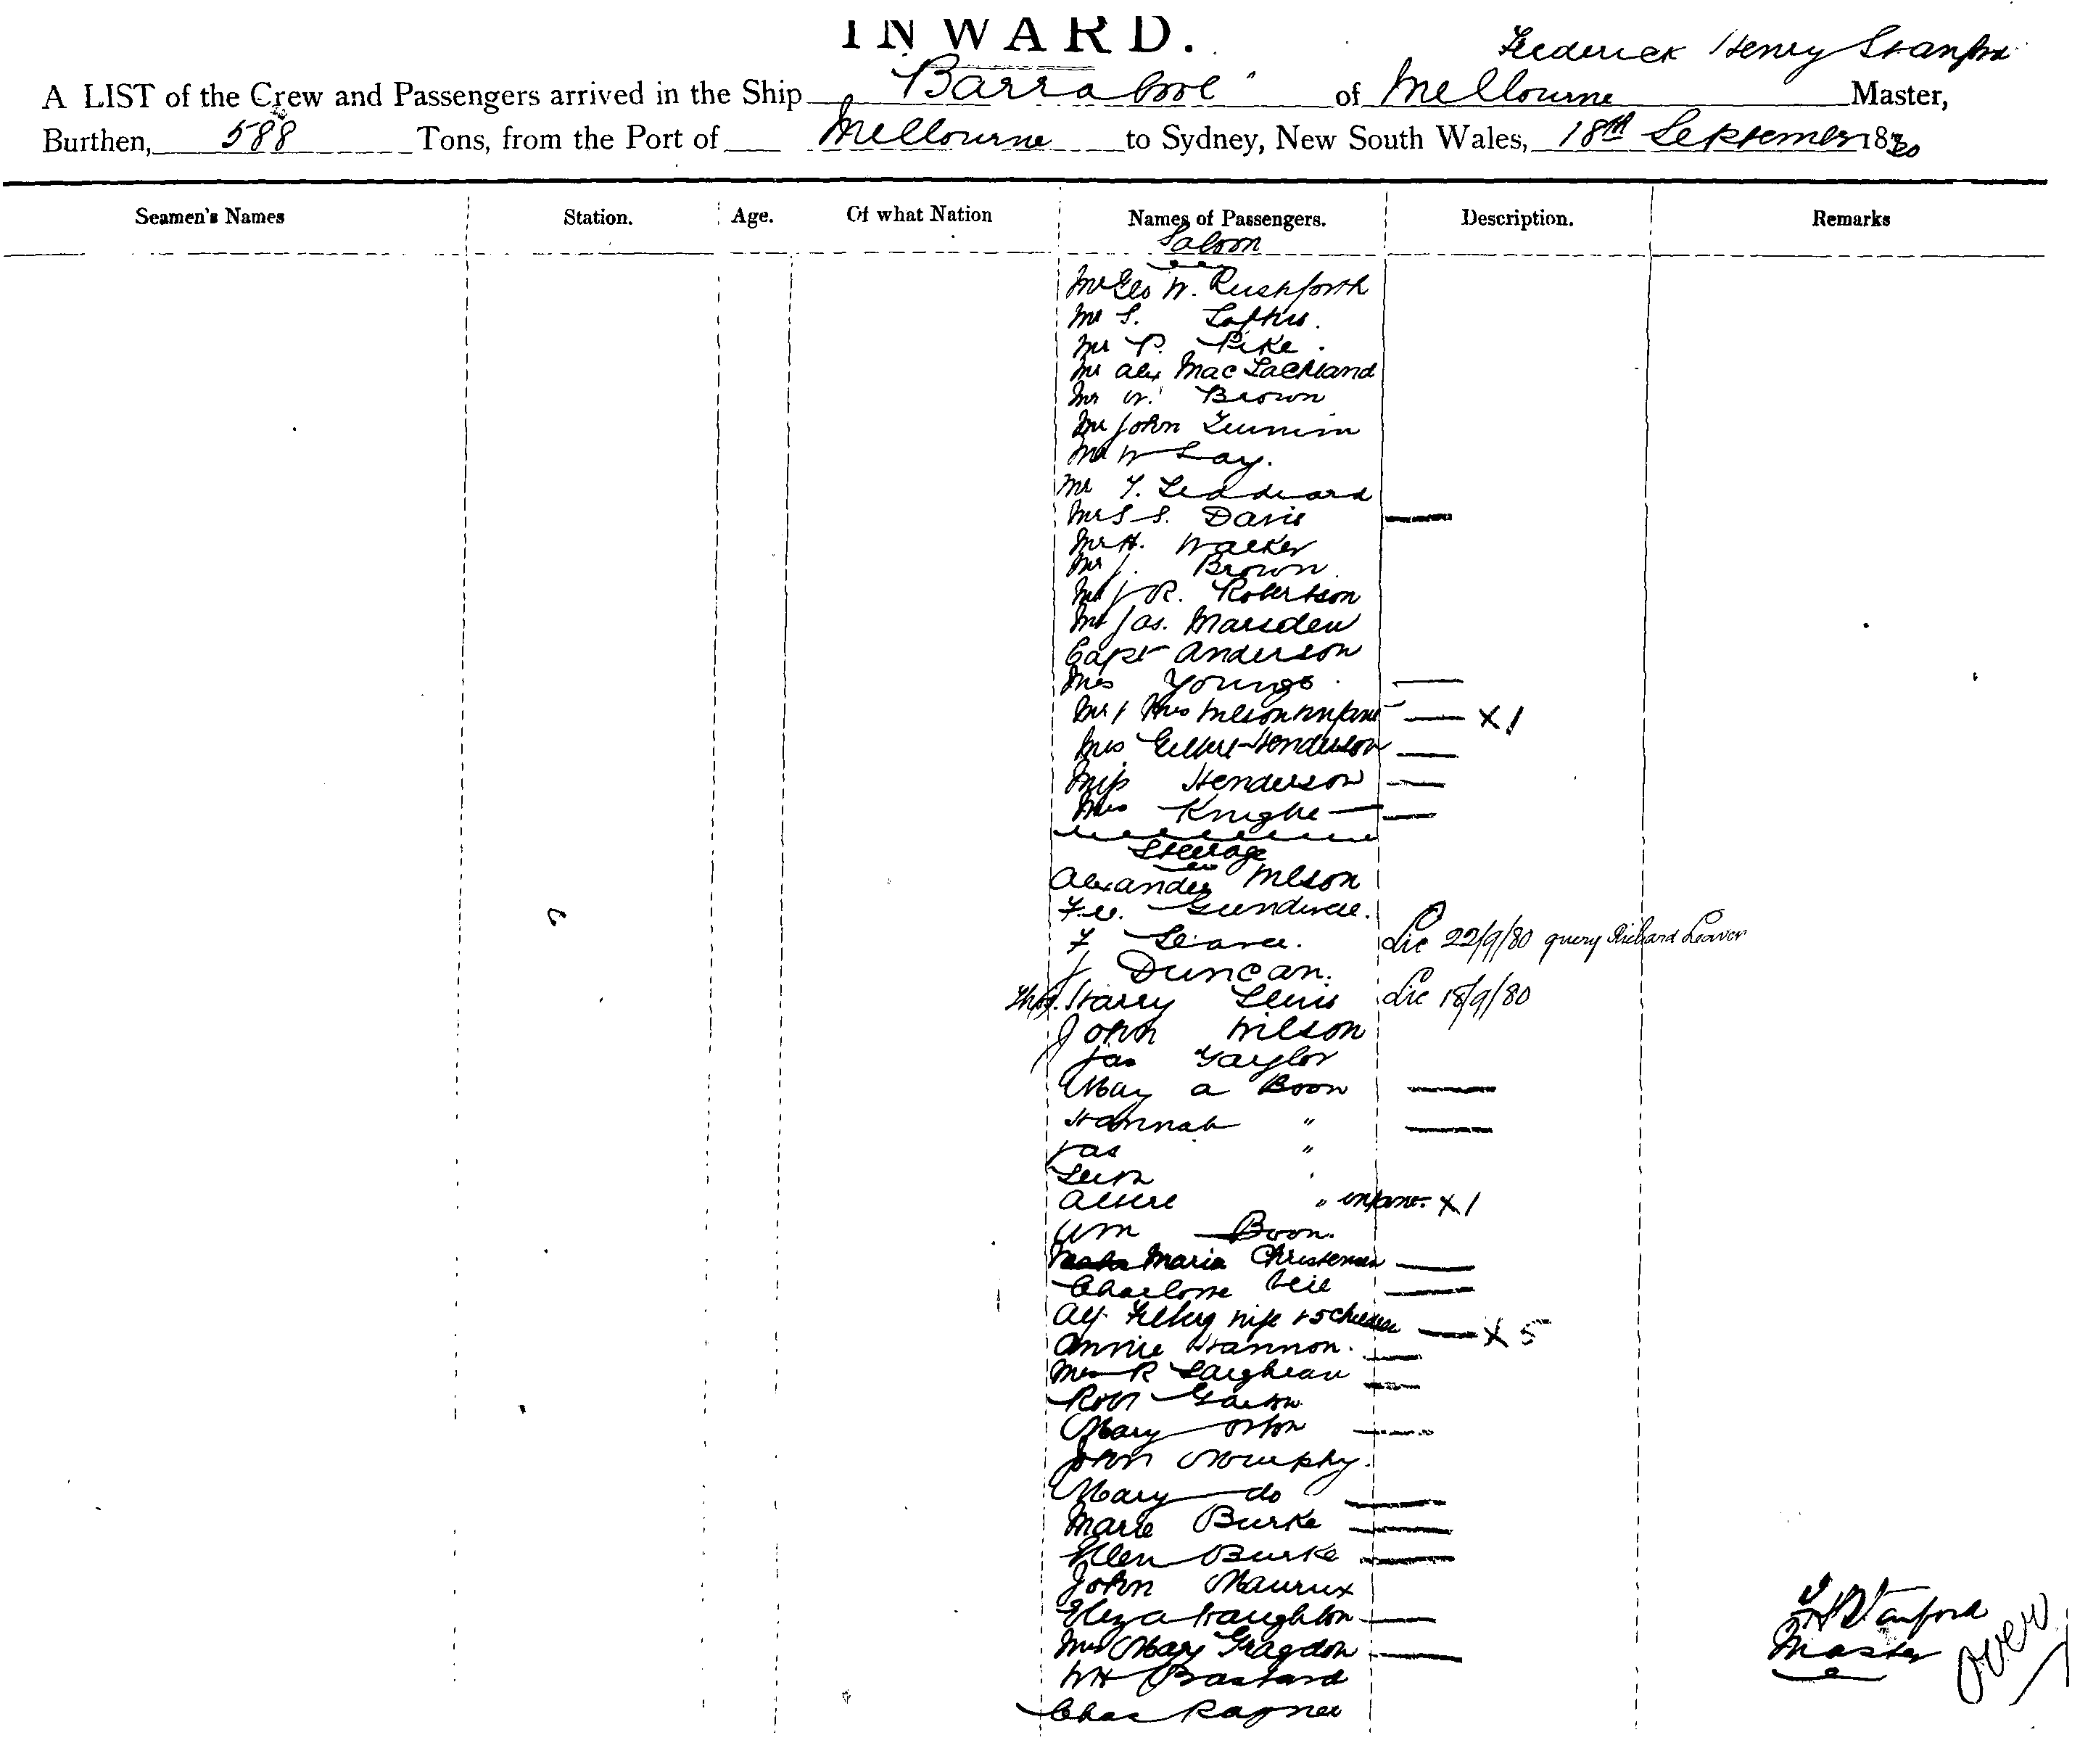 INWARD.
Frederick Henry Stanford
A LIST of the Crew and Passengers arrived in the Ship "Barrabool" of Melbourne Master,
Burthen, 588 Tons, from the Port of Melbourne to Sydney, New South Wales, 18th September 1880
Seamen's Names Station. Age. Of what Nation Names of Passengers. Description. Remarks
Saloon
Mr Geo W. Rushforth
Mr S. Loftus.
Mr P. Pike.
Mr Alex MacLachland
Mr W. Brown
Mr John
Mr W Lay.
Mr T.
Mrs S. Davis
Mr H. Walker
Mr J. Brown
Mr J R. Robertson
Mr Jas. Marsden
Capt Anderson
Mrs Youngs
Mr & Mrs Wilson & Infant X1
Mrs Henderson
Miss Henderson
Mrs Knight
Steerage
Alexander Wilson
F.
F Leaver. Lic 22/9/80 query Richard Leaver
J Duncan.
Thos. Harry Lewis Lic 18/9/80
John Wilson
Jas Taylor
Mary A Boon
Hannah "
Jas "
"
" infant X1
Wm Boon.
Maria Christensen
Charlotte
Alf wife & 5 children X5
Annie Hannon.
Mrs R
Robt
Mary Orton
John Murphy.
Mary do
Marie Burke
Ellen Burke
John
Eliza Haughton
Mrs Mary Gragdon
WH Bastard
Chas Rayner
F H Stanford
Master
Over